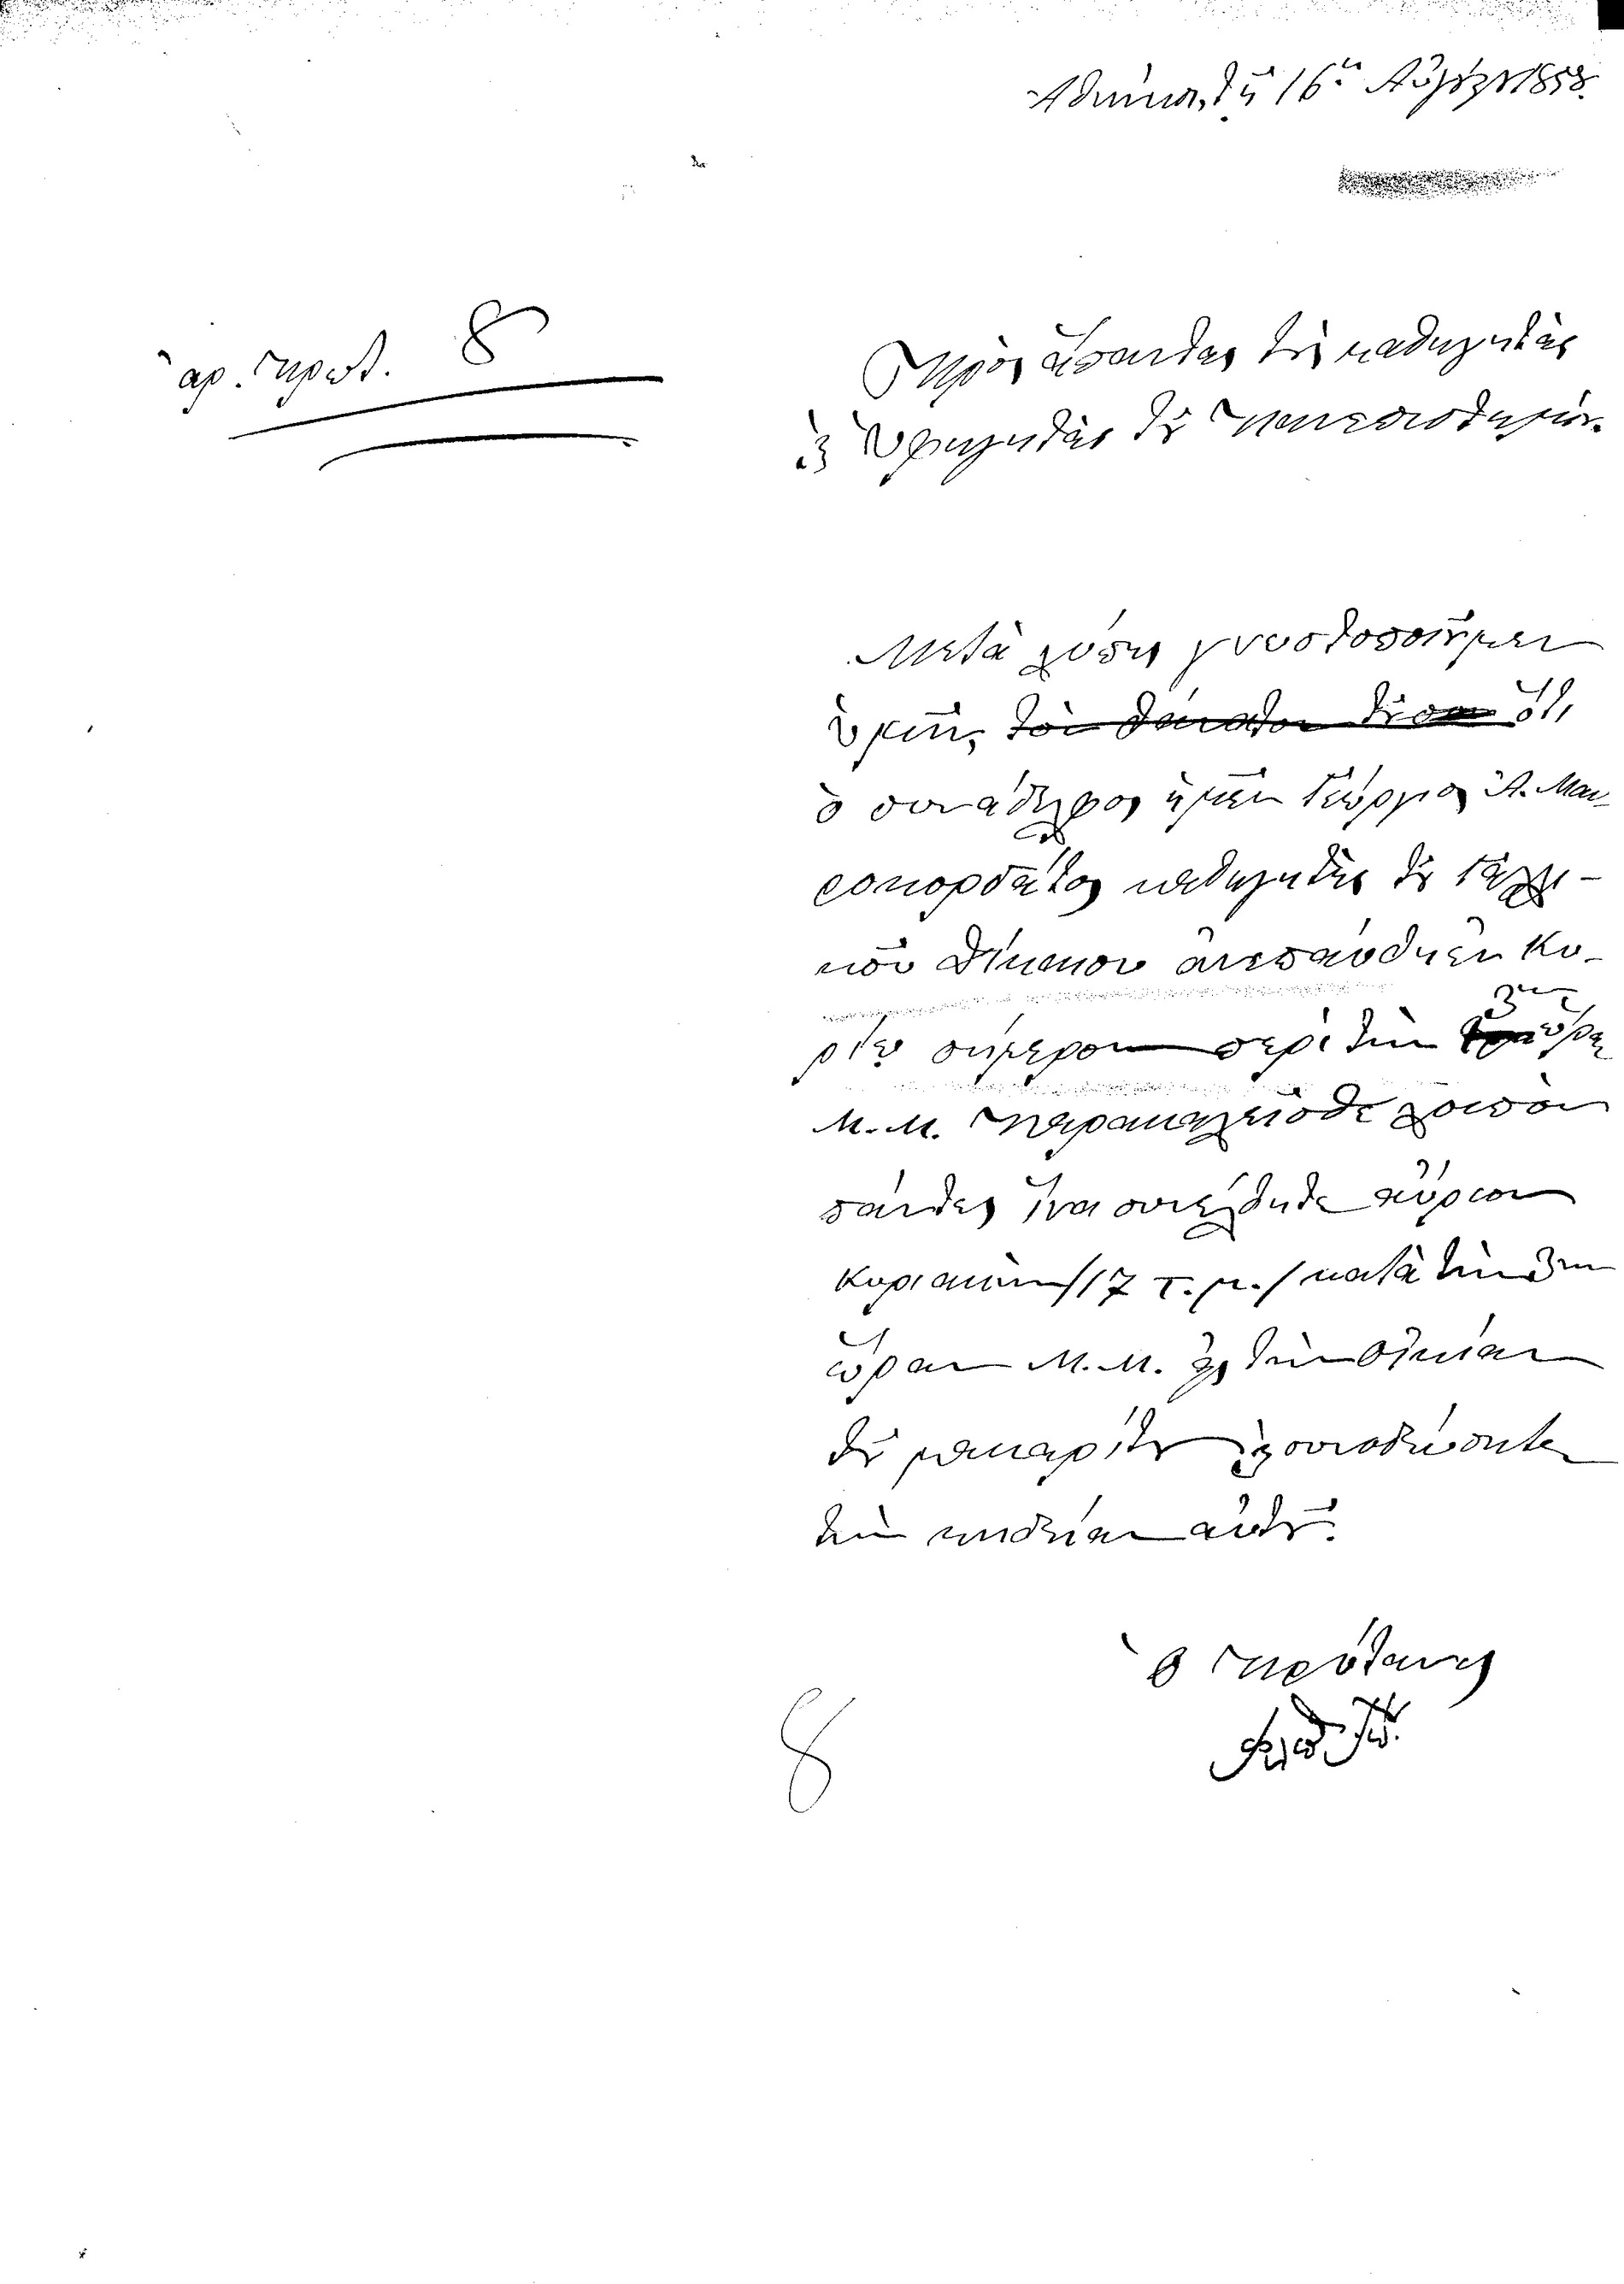 Ἀθήνας, τῇ 16ῃ Αὐγούστου 1858.
ἀρ. πρωτ. 8
Πρὸς ἅπαντας τοὺς καθηγητὰς
καὶ ὑφηγητὰς τοῦ Πανεπιστημίου.
Μετὰ λύπης γνωστοποιοῦμεν
ὑμῖν, τὸν θάνατον τοῦ ὅτι
ὁ συνάδελφος ἡμῶν Γεώργιος Α. Μαυ
ροκορδάτος καθηγητὴς τοῦ Γαλλι-
κοῦ Δικαίου ἀνεπαύθη ἐν Κυ-
ρίῳ σήμερον περὶ τὴν 3ην ὥραν
Μ.Μ. Παρακαλεῖσθε λοιπὸν
πάντες ἵνα συνέλθητε αὔριον
Κυριακὴν /17 τ. μ./ κατὰ τὴν 3ην
ὥραν Μ.Μ. εἰς τὴν οἰκίαν
τοῦ μακαρίτου καὶ συνοδεύσητε
τὴν κηδείαν αὐτοῦ.
Ὁ Πρύτανις
8